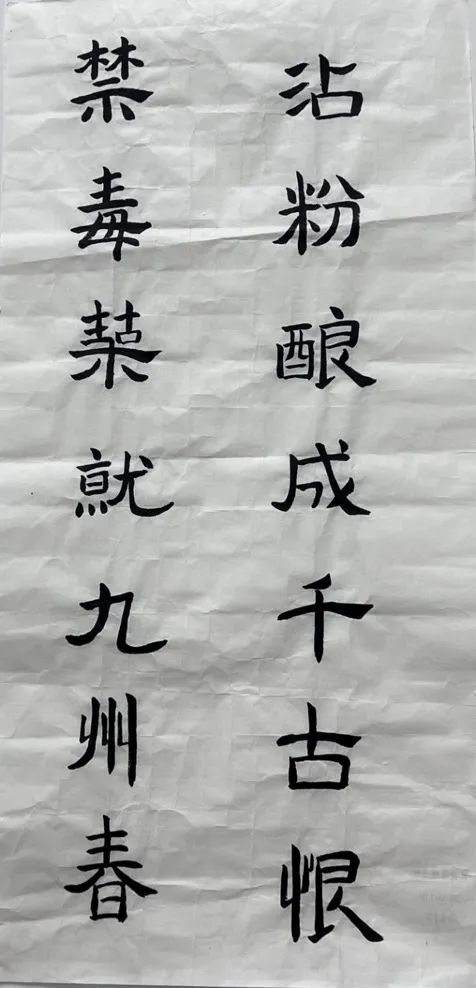 沾粉酿成千古恨
禁毒就九州春